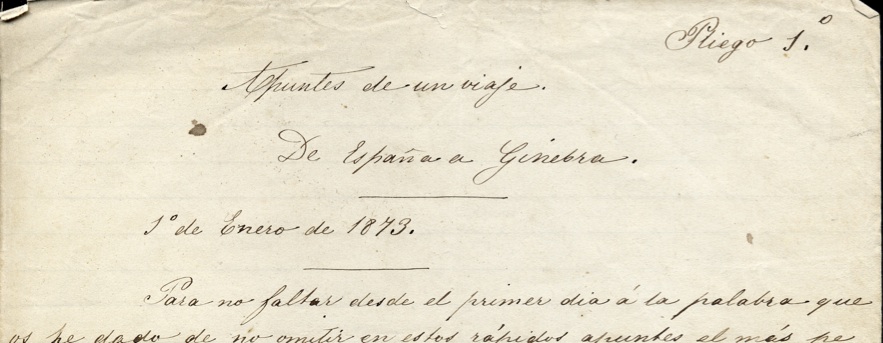 Pliego 1.º
Apuntes de un viaje.
De España a Ginebra.
1º de Enero de 1873.
Para no faltar desde el primer dia á la palabra que
os he dado de no omitir en estos rápidos apuntes el más pe